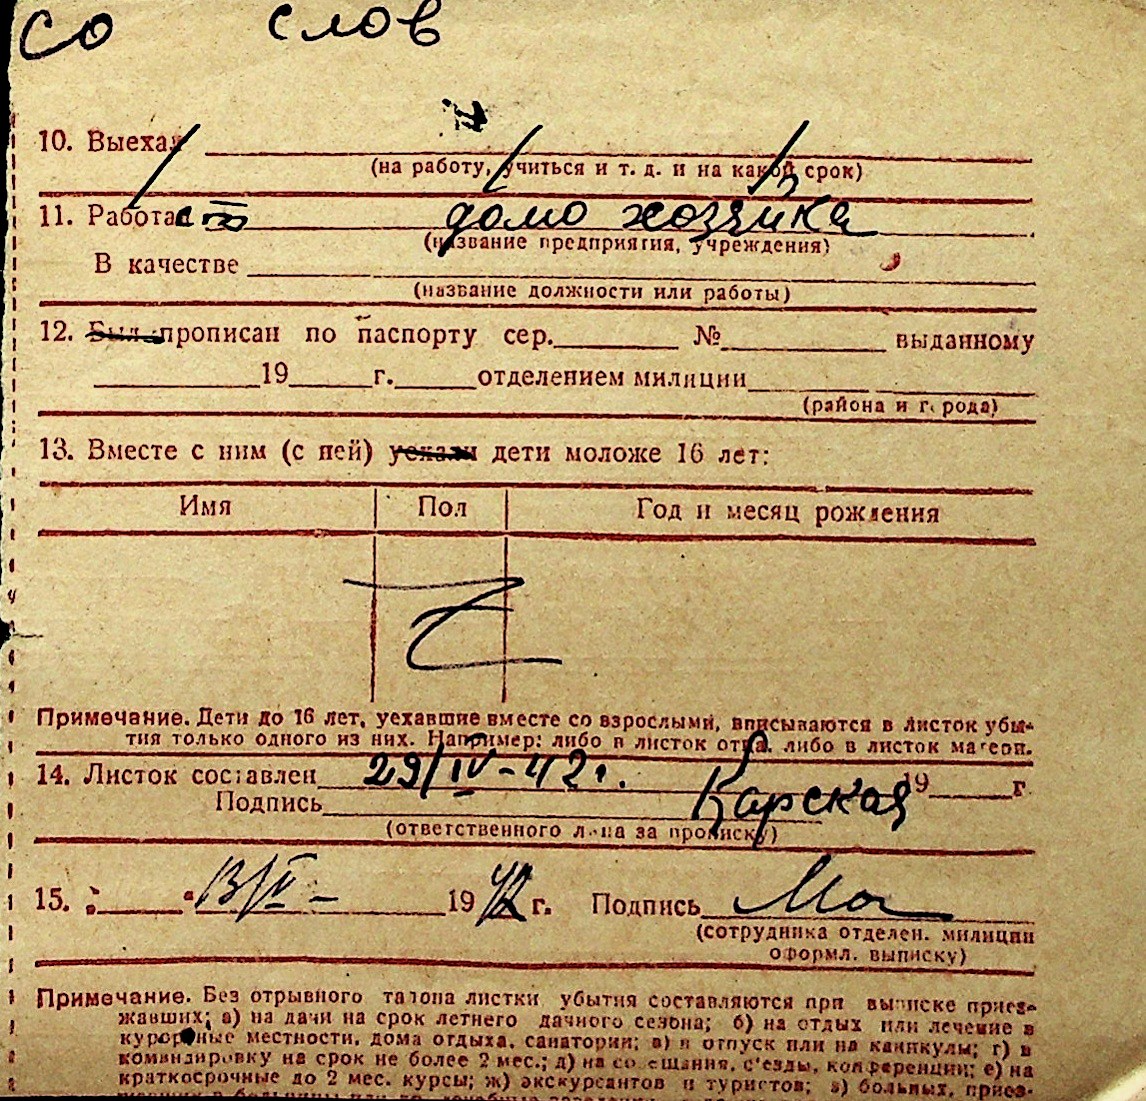 со слов
10. Выехал
(на работу, учиться и т. д. и на какой срок)
11. Работает домо хозяйка
(название предприятия, учреждения)
В качестве
(название должности или работы)
12. Был прописан по паспорту сер. № выданному
19 г. отделением милиции
(района и города)
13. Вместе с ним (с ней) уехали дети моложе 16 лет:
Имя Пол Год и месяц рождения
Примечание. Дети до 16 лет, уехавшие вместе со взрослыми, вписываются в листок убы-
тия только одного из них. Например: либо в листок отца, либо в листок матери.
14. Листок составлен 29/IV-42 г. 19 г.
Подпись Карская
(ответственного лица за прописку)
15. " " 13/V- 1942 г. Подпись
(сотрудника отделен. милиции
оформл. выписку)
Примечание. Без отрывного талона листки убытия составляются при выписке приез-
жавших: а) на дачи на срок летнего дачного сезона; б) на отдых или лечение в
курортные местности, дома отдыха, санатории; в) в отпуск или на каникулы; г) в
командировку на срок не более 2 мес.; д) на совещания, с'езды, конференции; е) на
краткосрочные до 2 мес. курсы; ж) экскурсантов и туристов; з) больных, приез-